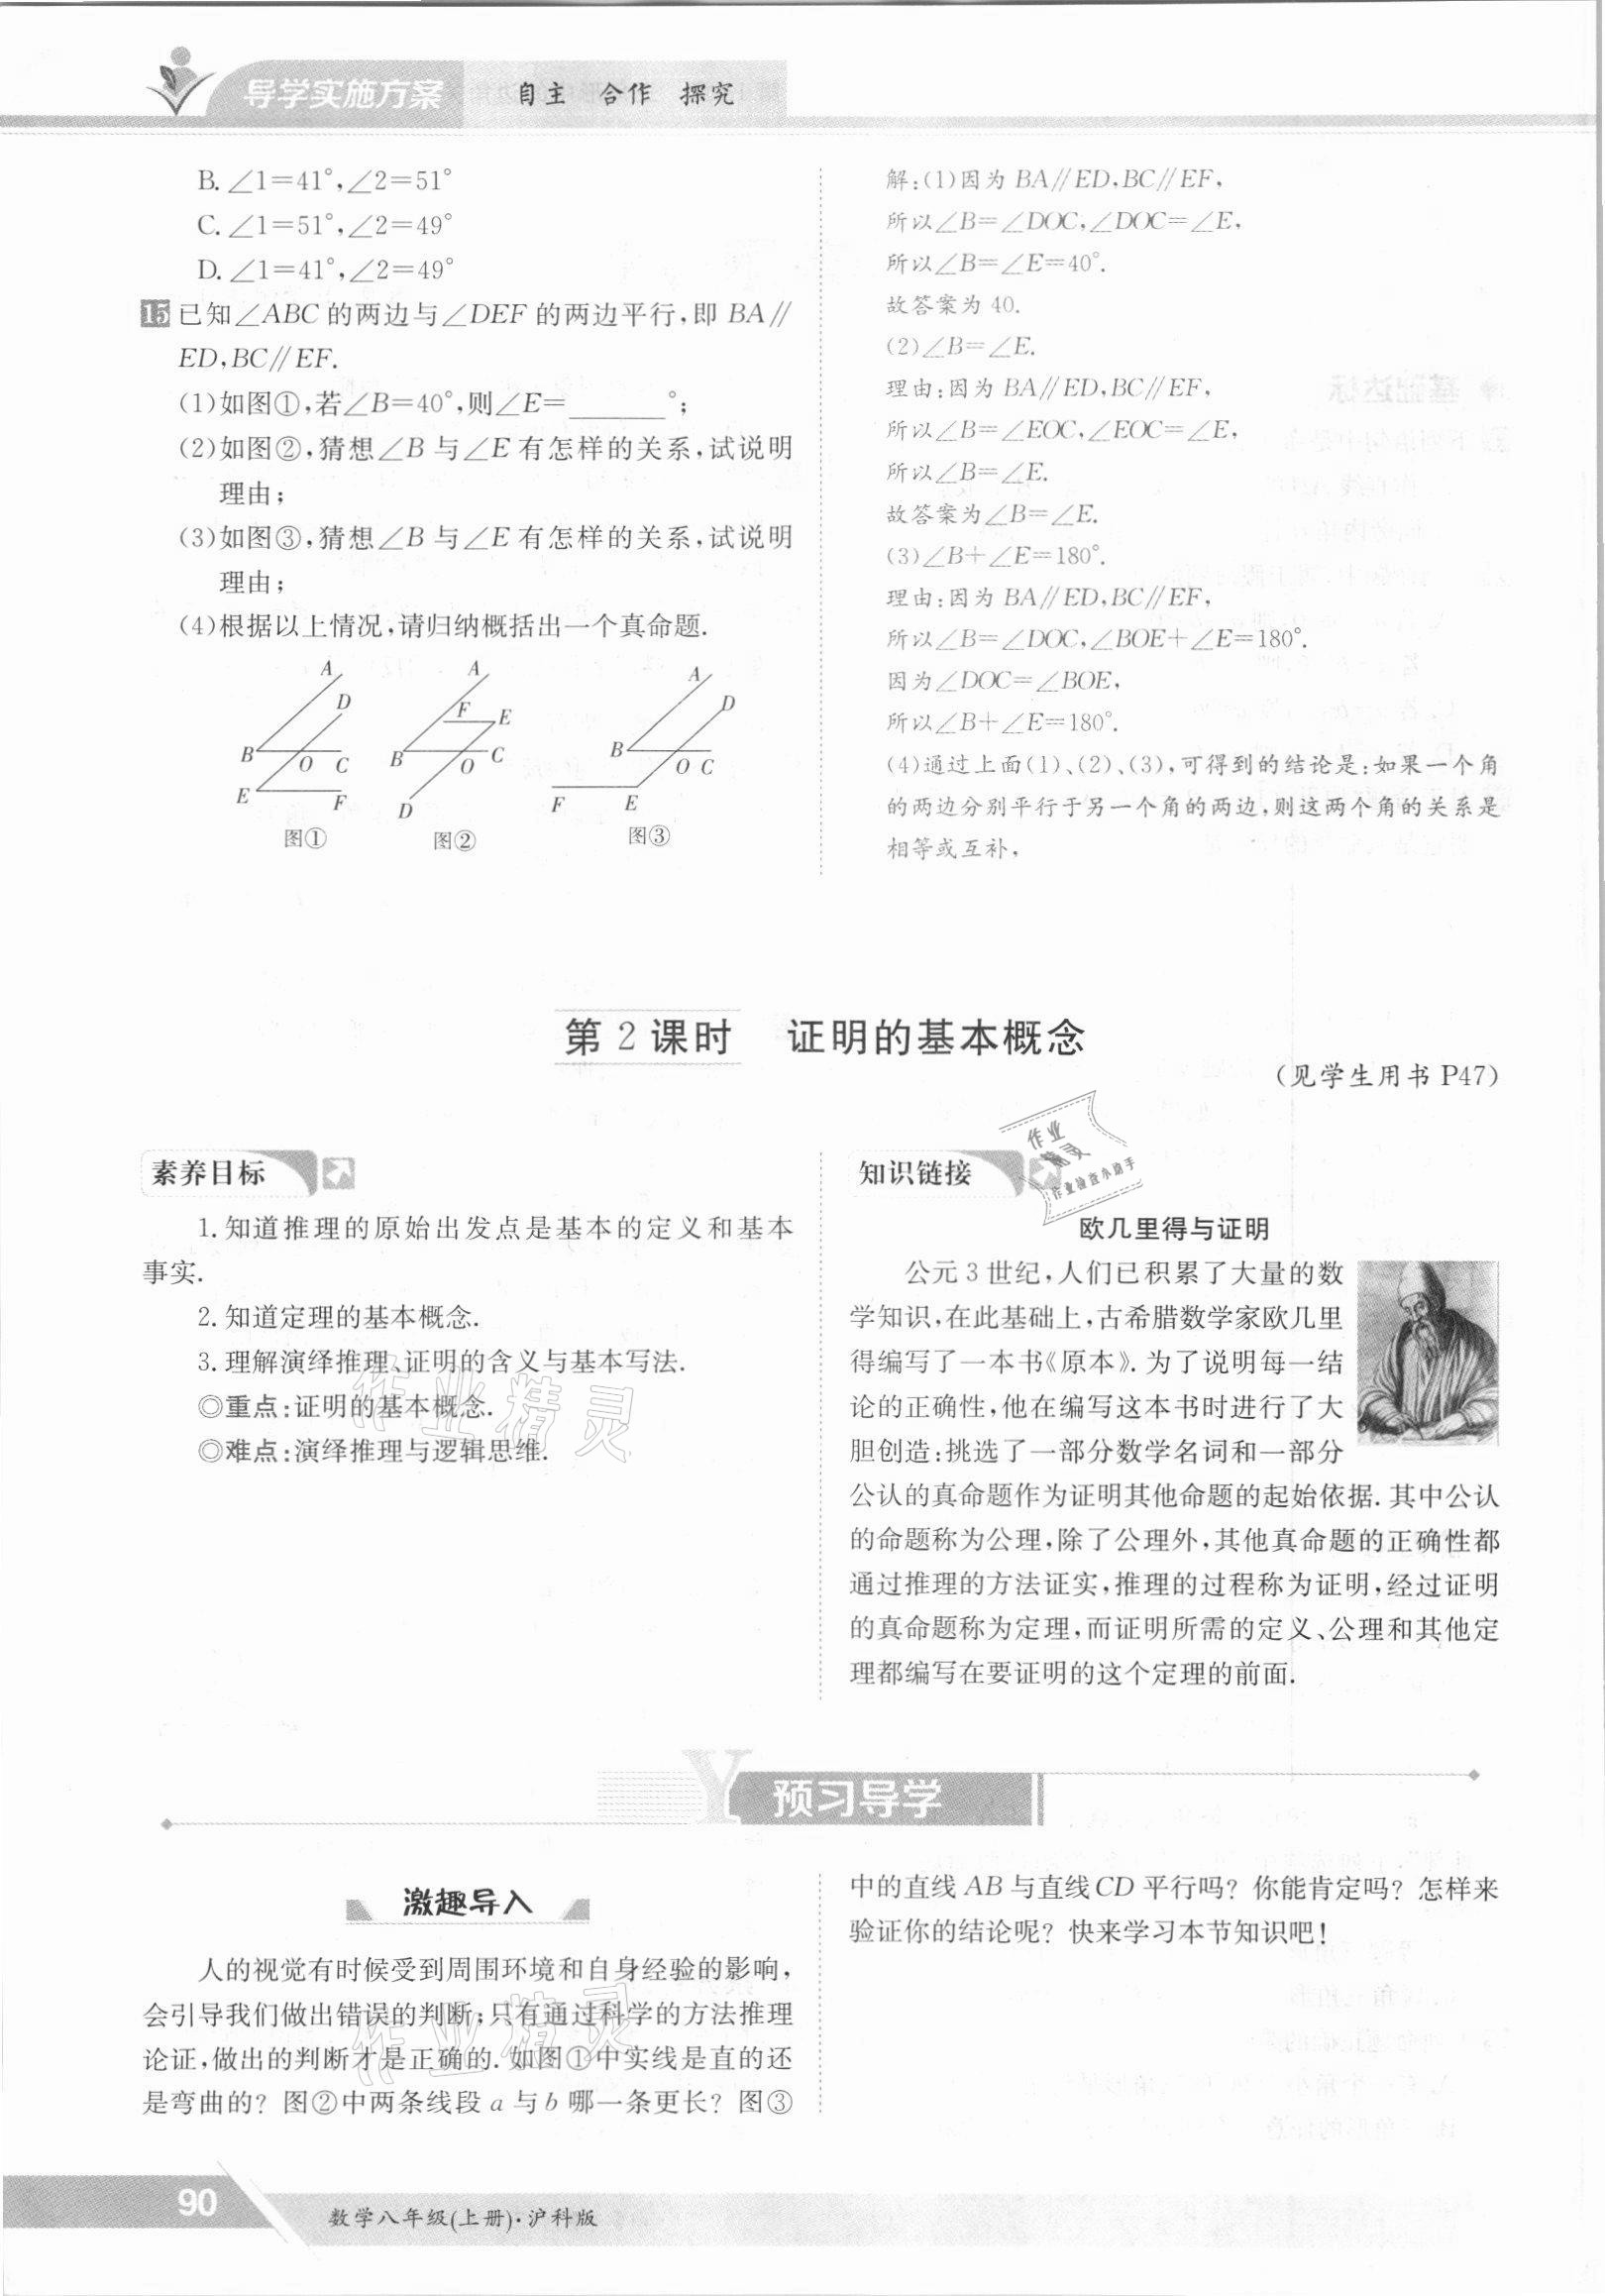 导学实施方案 自主 合作 探究
B.∠1=41°,∠2=51°
C.∠1=51°,∠2=49°
D.∠1=41°,∠2=49°
15 已知∠ABC的两边与∠DEF的两边平行,即BA∥
ED,BC∥EF.
(1)如图①,若∠B=40°,则∠E=______°;
(2)如图②,猜想∠B与∠E有怎样的关系,试说明
理由;
(3)如图③,猜想∠B与∠E有怎样的关系,试说明
理由;
(4)根据以上情况,请归纳概括出一个真命题.
A D B O C E F
图①
A F E B O C D
图②
A D B O C F E
图③
解:(1)因为BA∥ED,BC∥EF,
所以∠B=∠DOC,∠DOC=∠E,
所以∠B=∠E=40°.
故答案为40.
(2)∠B=∠E.
理由:因为BA∥ED,BC∥EF,
所以∠B=∠EOC,∠EOC=∠E,
所以∠B=∠E.
故答案为∠B=∠E.
(3)∠B+∠E=180°.
理由:因为BA∥ED,BC∥EF,
所以∠B=∠DOC,∠BOE+∠E=180°.
因为∠DOC=∠BOE,
所以∠B+∠E=180°.
(4)通过上面(1)、(2)、(3),可得到的结论是:如果一个角
的两边分别平行于另一个角的两边,则这两个角的关系是
相等或互补,
第2课时 证明的基本概念
(见学生用书P47)
素养目标
1.知道推理的原始出发点是基本的定义和基本
事实.
2.知道定理的基本概念.
3.理解演绎推理、证明的含义与基本写法.
◎重点:证明的基本概念.
◎难点:演绎推理与逻辑思维.
作业精灵
知识链接
作业
精灵
作业检查小助手
欧几里得与证明
公元3世纪,人们已积累了大量的数
学知识,在此基础上,古希腊数学家欧几里
得编写了一本书《原本》.为了说明每一结
论的正确性,他在编写这本书时进行了大
胆创造:挑选了一部分数学名词和一部分
公认的真命题作为证明其他命题的起始依据.其中公认
的命题称为公理,除了公理外,其他真命题的正确性都
通过推理的方法证实,推理的过程称为证明,经过证明
的真命题称为定理,而证明所需的定义、公理和其他定
理都编写在要证明的这个定理的前面.
Y 预习导学
激趣导入
人的视觉有时候受到周围环境和自身经验的影响,
会引导我们做出错误的判断;只有通过科学的方法推理
论证,做出的判断才是正确的.如图①中实线是直的还
是弯曲的?图②中两条线段a与b哪一条更长?图③
作业精灵
中的直线AB与直线CD平行吗?你能肯定吗?怎样来
验证你的结论呢?快来学习本节知识吧!
90
数学八年级(上册)·沪科版